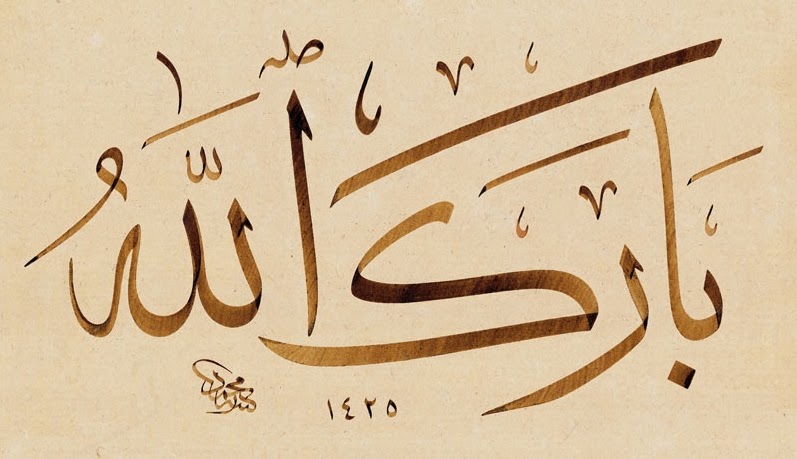 بَارَكَ ٱللّٰهُ
١٤٢٥